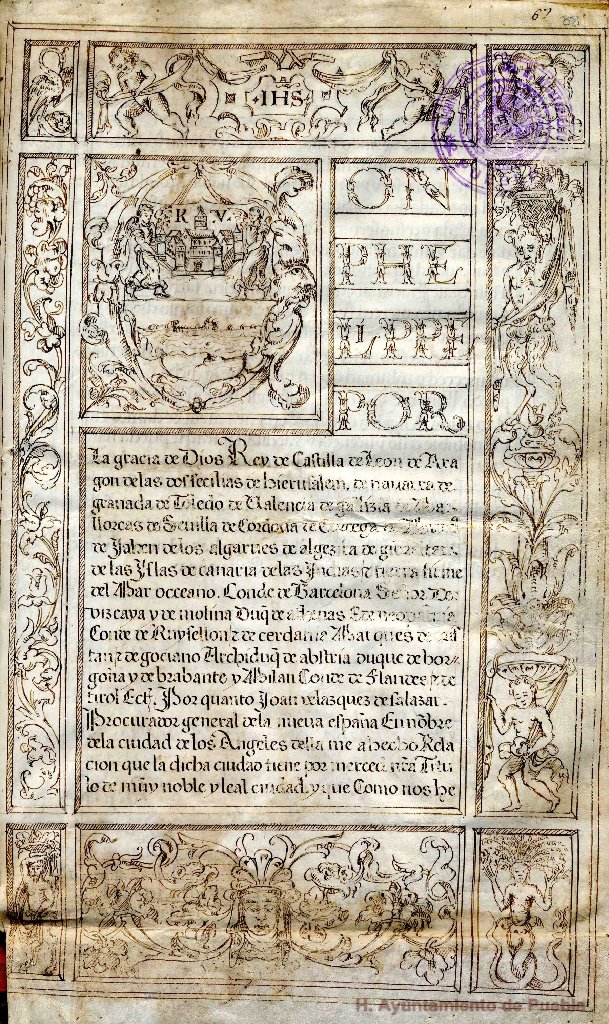 67
IHS
K V
ON
PHE
LPPE
POR
La gracia de Dios Rey de Castilla de Leon de Ara
gon de las dos secilias de hierusalem de navarra de
granada de Toledo de Valencia de galizia de Mar
llorcas de Sevilla de Cordova de Corcega de
de Jahen de los algarves de algezira de gibraltar
de las Yslas de canaria de las Yndias tierra firme
del Mar occeano. Conde de Barcelona Señor de
vizcaya y de molina Duq̃ de athenas
Conde de Ruysellon z de cerdania Marques de oris
tan z de gociano Archiduq̃ de abstria duque de bor
goña y de brabante y Milan Conde de Flandes y de
tirol Ect̃. Por quanto Joan velazquez de salazar.
Procurador general de la nueva españa En nõbre
de la ciudad de los Angeles della me a hecho Rela
cion que la dicha ciudad tiene por merced nr̃a Titu
lo de muy noble y leal ciudad, y que Como nos he
H. Ayuntamiento de Puebla